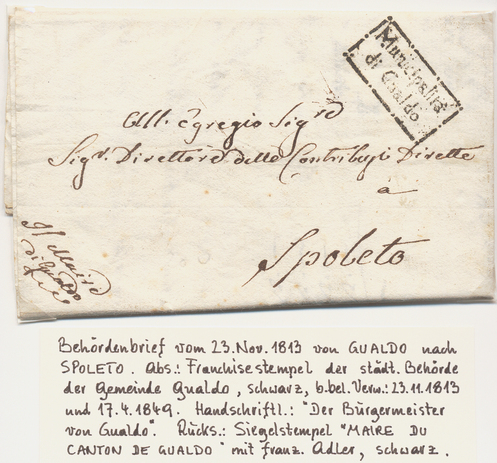 Municipalità
di Gualdo
All' Egregio Sig.re
Sig.r Direttore delle Contribuz.i Dirette
a
Spoleto
Il Maire
di Gualdo
Behördenbrief vom 23. Nov. 1813 von GUALDO nach
SPOLETO. Abs.: Franchisestempel der städt. Behörde
der Gemeinde Gualdo, schwarz, b. bel. Verw.: 23.11.1813
und 17.4.1849. Handschriftl.: "Der Bürgermeister
von Gualdo". Rücks.: Siegelstempel "MAIRE DU
CANTON DE GUALDO" mit franz. Adler, schwarz.